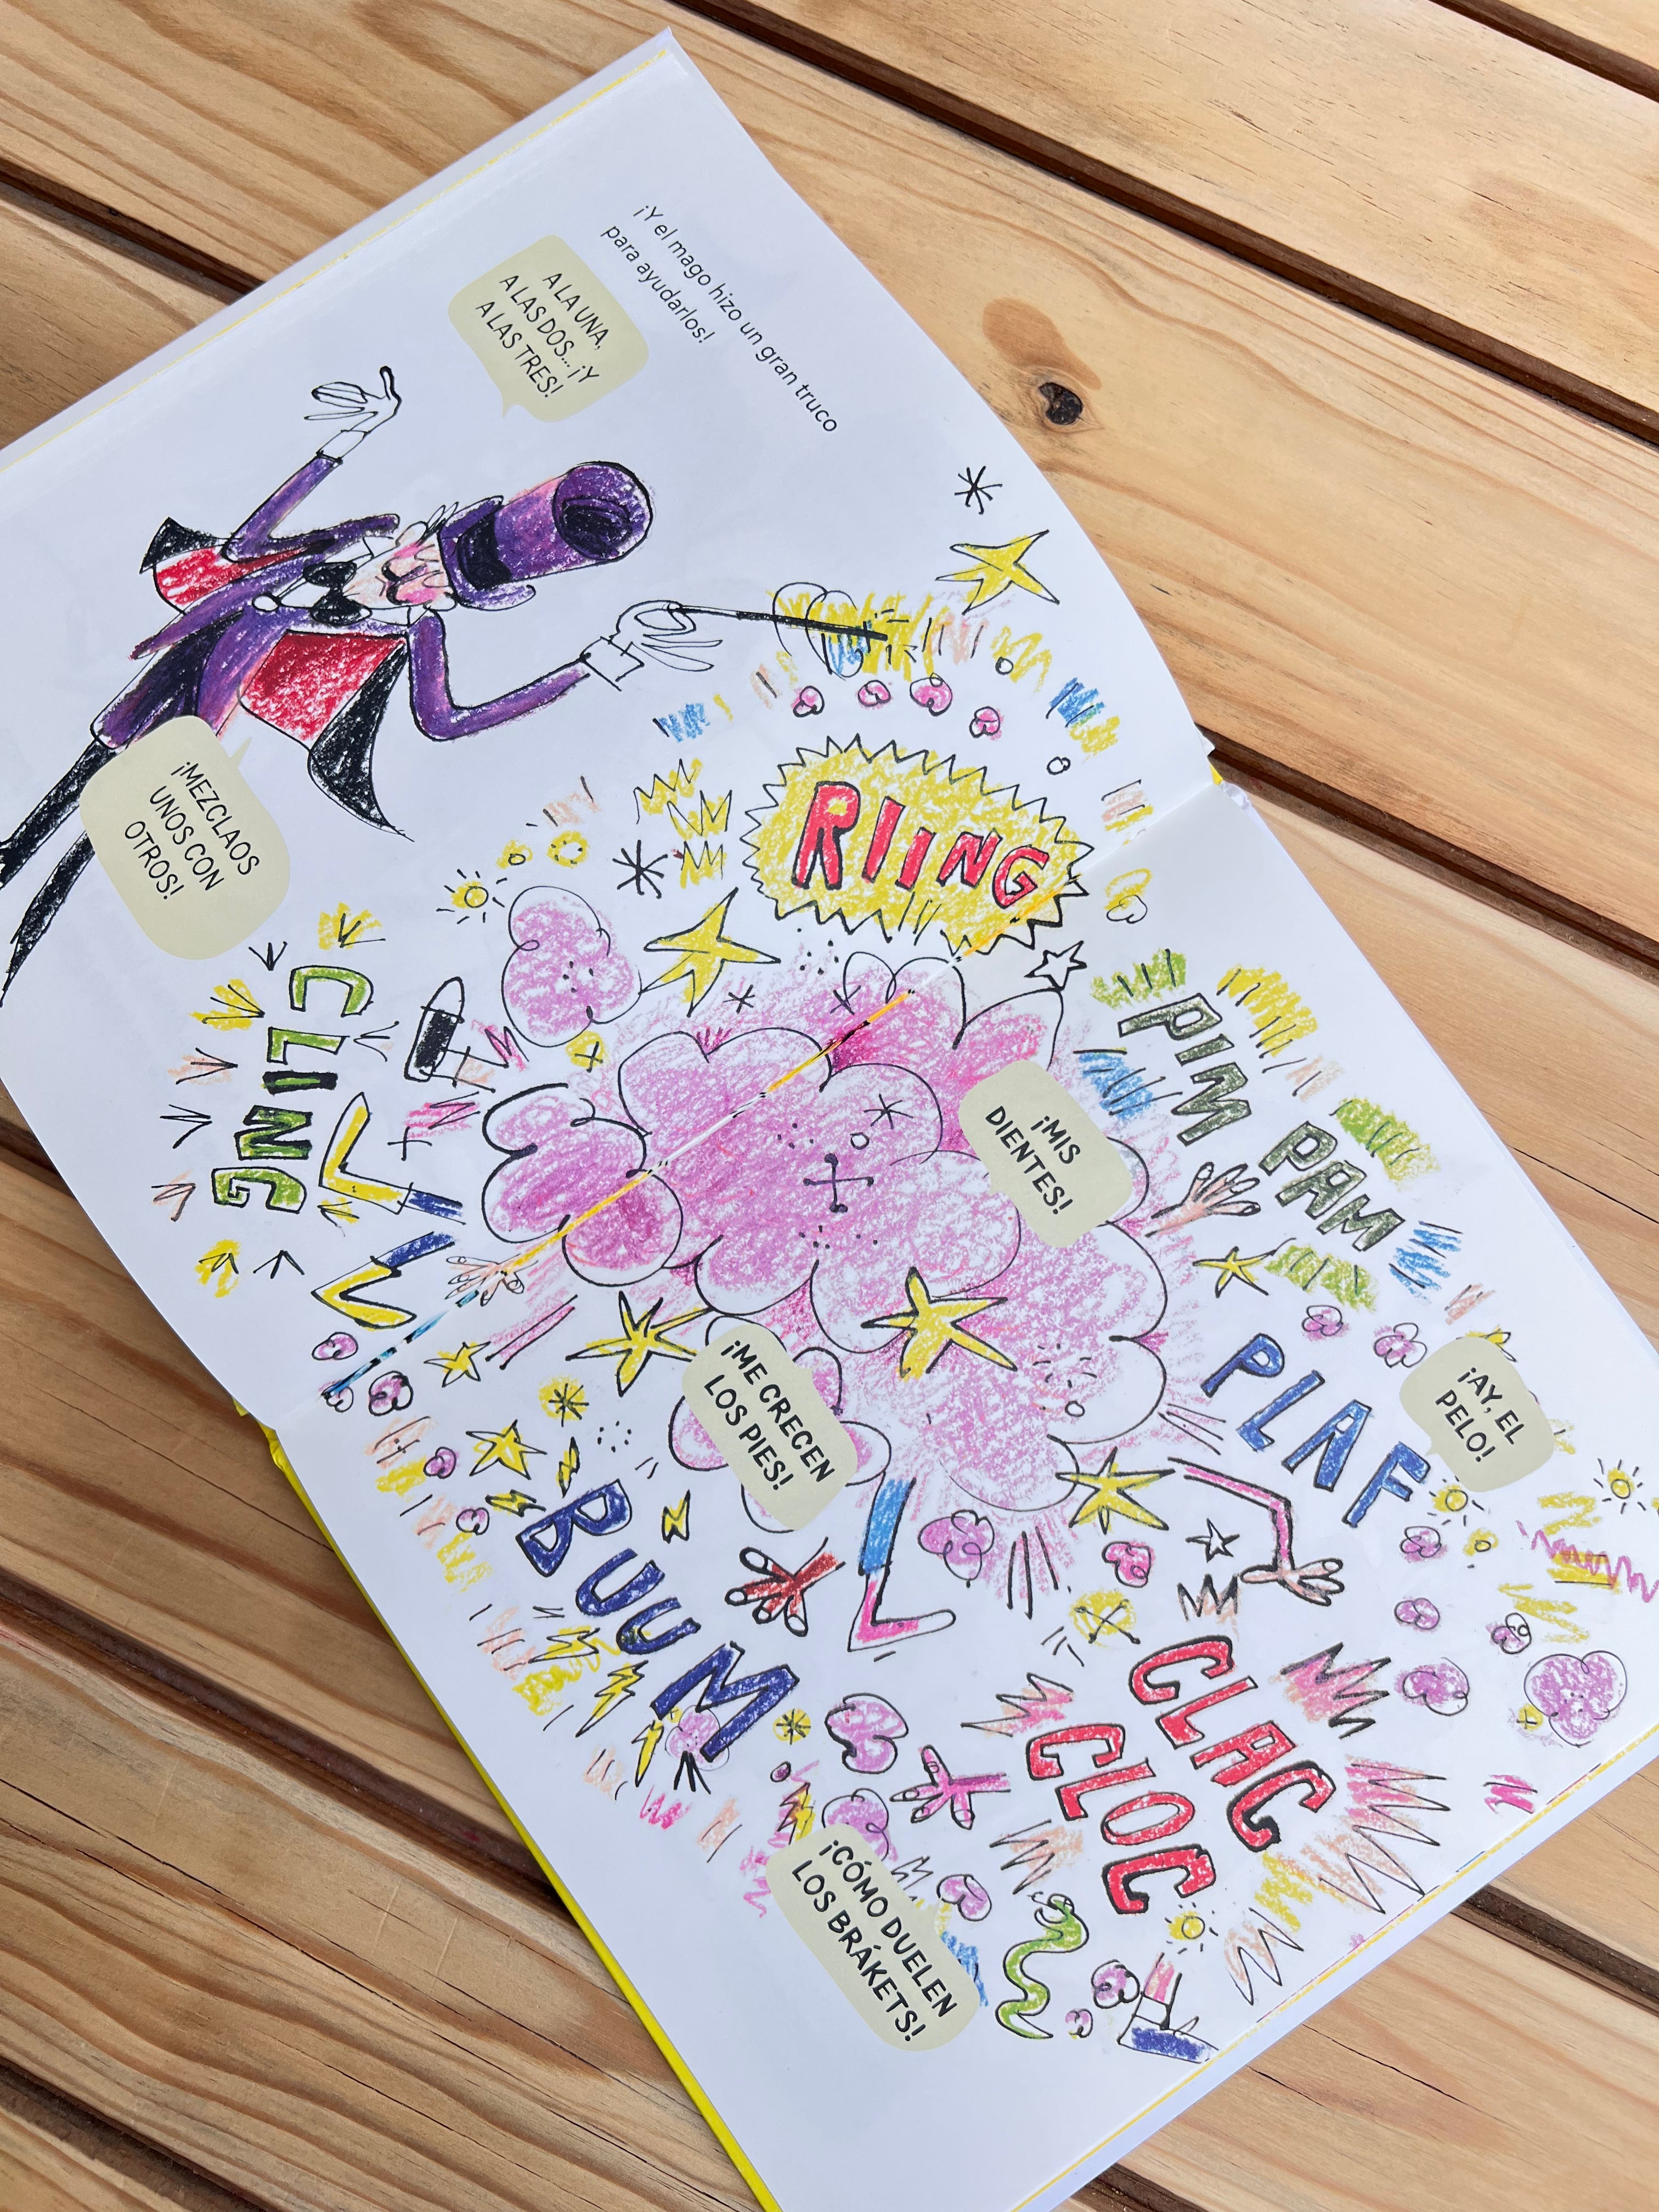 ¡Y el mago hizo un gran truco
para ayudarlos!
A LA UNA,
A LAS DOS... ¡Y
A LAS TRES!
¡MEZCLAOS
UNOS CON
OTROS!
RIING
CLING
PIM PAM
¡MIS
DIENTES!
PLAF
¡AY, EL
PELO!
¡ME CRECEN
LOS PIES!
BUUM
CLAC
CLOC
¡CÓMO DUELEN
LOS BRÁKETS!